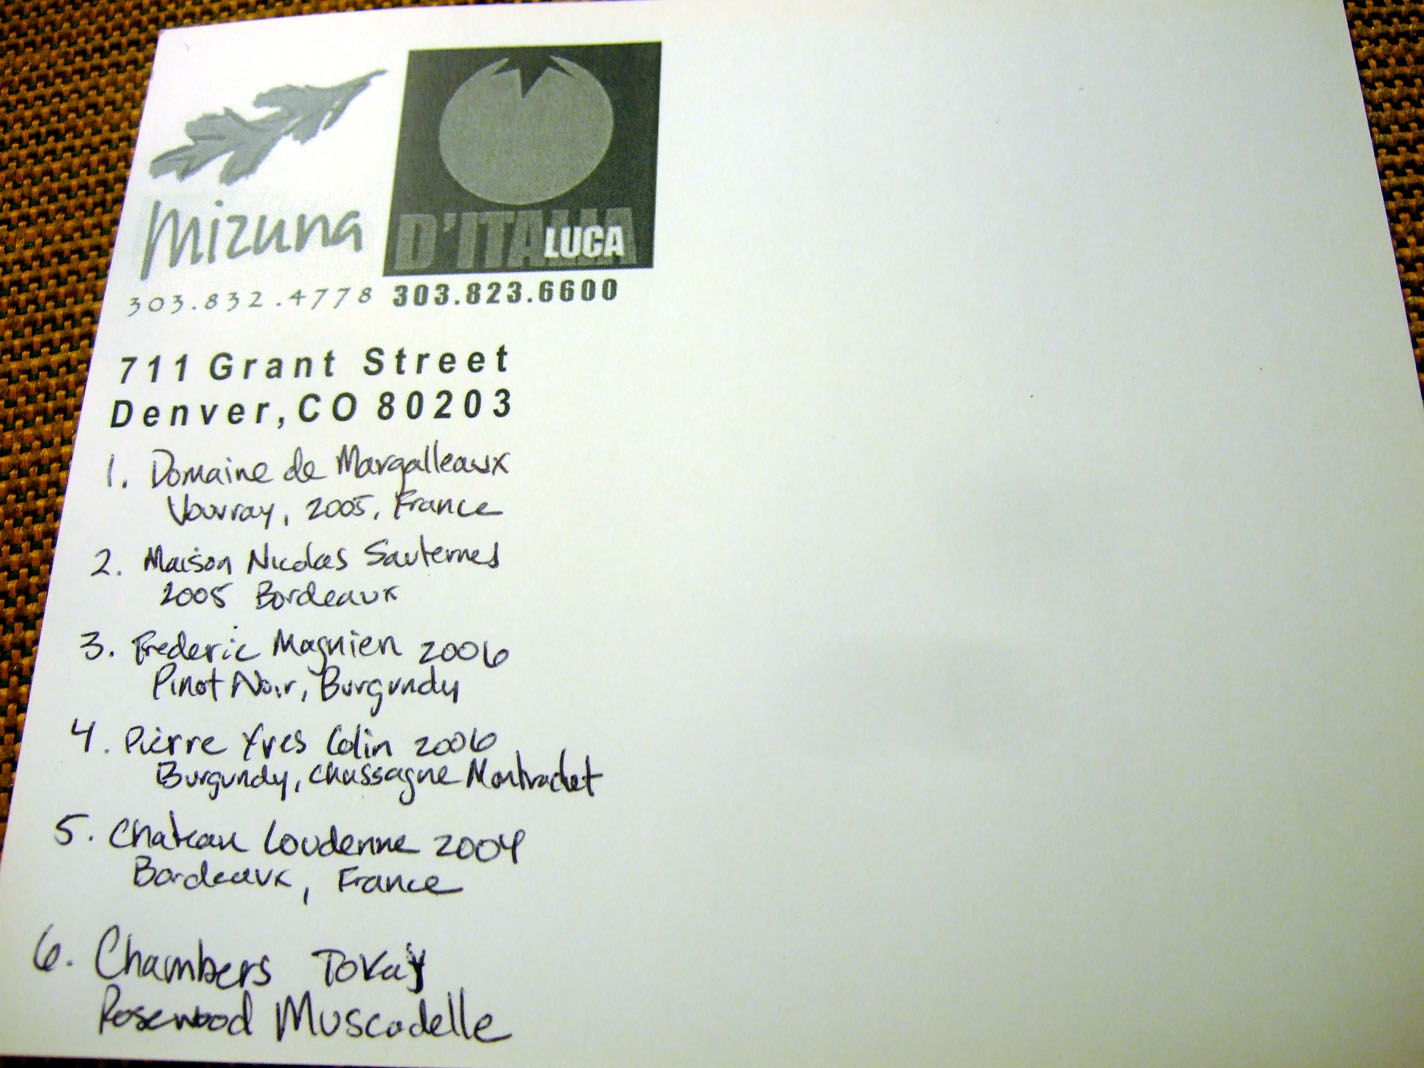 Mizuna
D'ITALIA
LUCA
303.832.4778
303.823.6600
711 Grant Street
Denver, CO 80203
1. Domaine de Margalleaux
Vouvray, 2005, France
2. Maison Nicolas Sauternes
2005 Bordeaux
3. Frederic Magnien 2006
Pinot Noir, Burgundy
4. Pierre Yves Colin 2006
Burgundy, Chassagne Montrachet
5. Chateau Loudenne 2004
Bordeaux, France
6. Chambers Tokay
Rosewood Muscadelle